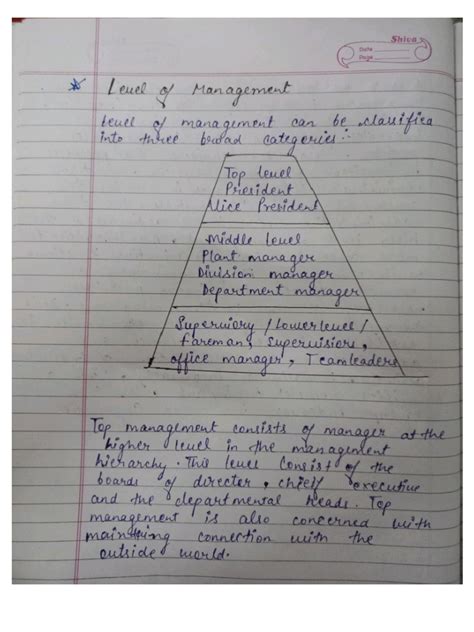 Shiva
Date
Page
Level of Management
Level of management can be classifica
into three broad categories:-
Top level
President
Vice President
Middle level
Plant manager
Division manager
Department manager
Superviory / Lower level /
foreman, Supervision,
office manager, Team leaders
Top management consists of manager at the
higher level in the management
hierarchy. This level Consist of the
boards of directer, chief executive
and the departmental heads. Top
management is also concerned with
maintaining connection with the
outside world.